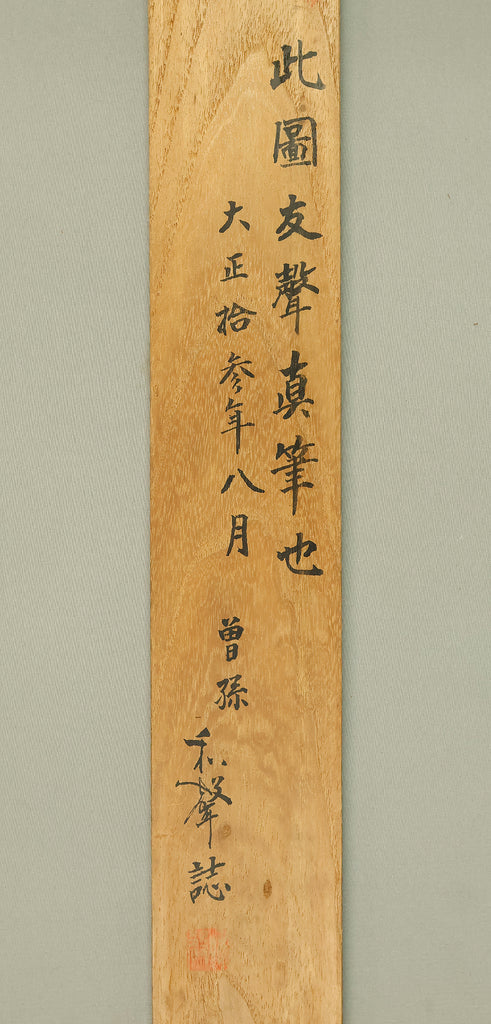 此圖友聲真筆也
大正拾参年八月
曽孫
和聲誌